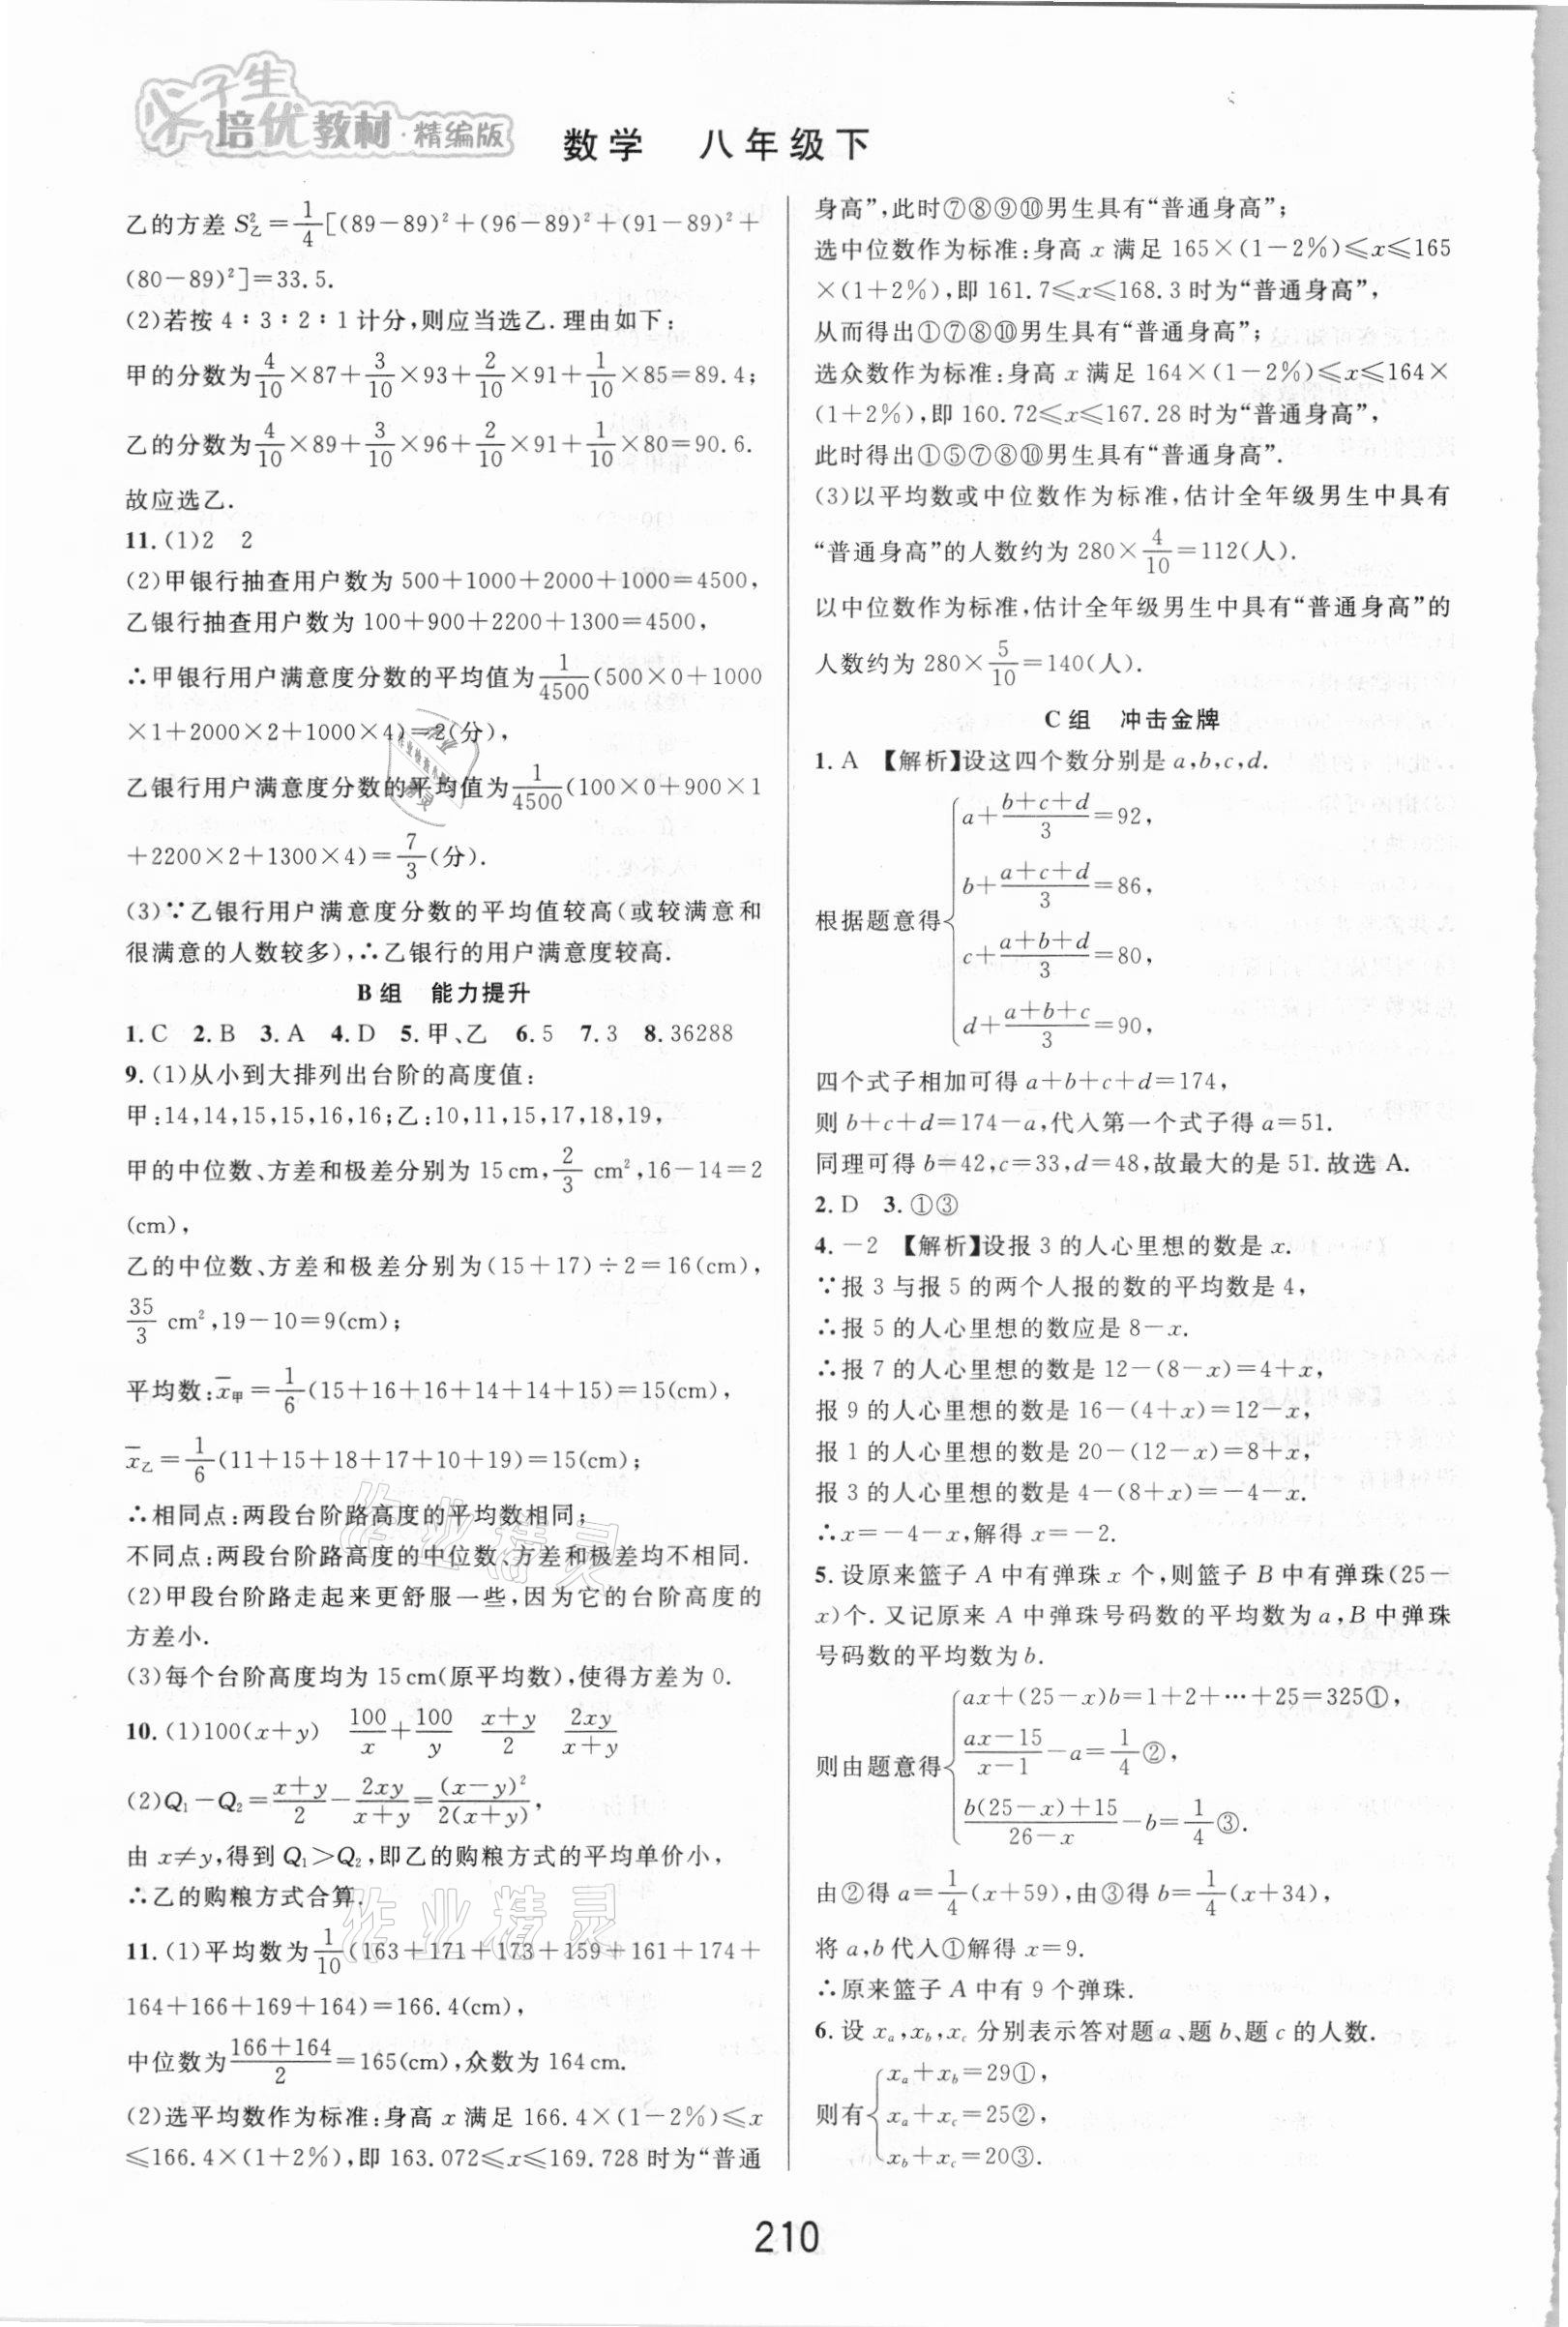 尖子生
培优教材·精编版
数学 八年级下
乙的方差 S²乙=1/4[(89-89)²+(96-89)²+(91-89)²+
(80-89)²]=33.5.
(2)若按 4∶3∶2∶1 计分,则应当选乙.理由如下:
甲的分数为 4/10×87+3/10×93+2/10×91+1/10×85=89.4;
乙的分数为 4/10×89+3/10×96+2/10×91+1/10×80=90.6.
故应选乙.
11.(1)2 2
(2)甲银行抽查用户数为 500+1000+2000+1000=4500,
乙银行抽查用户数为 100+900+2200+1300=4500,
∴甲银行用户满意度分数的平均值为 1/4500(500×0+1000
×1+2000×2+1000×4)=2(分),
乙银行用户满意度分数的平均值为 1/4500(100×0+900×1
+2200×2+1300×4)=7/3(分).
(3)∵乙银行用户满意度分数的平均值较高(或较满意和
很满意的人数较多),∴乙银行的用户满意度较高.
B组 能力提升
1.C 2.B 3.A 4.D 5.甲、乙 6.5 7.3 8.36288
9.(1)从小到大排列出台阶的高度值:
甲:14,14,15,15,16,16;乙:10,11,15,17,18,19,
甲的中位数、方差和极差分别为 15 cm,2/3 cm²,16-14=2
(cm),
乙的中位数、方差和极差分别为(15+17)÷2=16(cm),
35/3 cm²,19-10=9(cm);
平均数:x̄甲=1/6(15+16+16+14+14+15)=15(cm),
x̄乙=1/6(11+15+18+17+10+19)=15(cm);
∴相同点:两段台阶路高度的平均数相同;
不同点:两段台阶路高度的中位数、方差和极差均不相同.
(2)甲段台阶路走起来更舒服一些,因为它的台阶高度的
方差小.
(3)每个台阶高度均为 15 cm(原平均数),使得方差为 0.
10.(1)100(x+y) 100/x+100/y (x+y)/2 2xy/(x+y)
(2)Q₁-Q₂=(x+y)/2-2xy/(x+y)=(x-y)²/2(x+y),
由 x≠y,得到 Q₁>Q₂,即乙的购粮方式的平均单价小,
∴乙的购粮方式合算.
11.(1)平均数为 1/10(163+171+173+159+161+174+
164+166+169+164)=166.4(cm),
中位数为 (166+164)/2=165(cm),众数为 164 cm.
(2)选平均数作为标准:身高 x 满足 166.4×(1-2%)≤x
≤166.4×(1+2%),即 163.072≤x≤169.728 时为“普通
身高”,此时⑦⑧⑨⑩男生具有“普通身高”;
选中位数作为标准:身高 x 满足 165×(1-2%)≤x≤165
×(1+2%),即 161.7≤x≤168.3 时为“普通身高”,
从而得出①⑦⑧⑩男生具有“普通身高”;
选众数作为标准:身高 x 满足 164×(1-2%)≤x≤164×
(1+2%),即 160.72≤x≤167.28 时为“普通身高”,
此时得出①⑤⑦⑧⑩男生具有“普通身高”.
(3)以平均数或中位数作为标准,估计全年级男生中具有
“普通身高”的人数约为 280×4/10=112(人).
以中位数作为标准,估计全年级男生中具有“普通身高”的
人数约为 280×5/10=140(人).
C组 冲击金牌
1.A 【解析】设这四个数分别是 a,b,c,d.
根据题意得
a+(b+c+d)/3=92,
b+(a+c+d)/3=86,
c+(a+b+d)/3=80,
d+(a+b+c)/3=90,
四个式子相加可得 a+b+c+d=174,
则 b+c+d=174-a,代入第一个式子得 a=51.
同理可得 b=42,c=33,d=48,故最大的是 51.故选 A.
2.D 3.①③
4.-2 【解析】设报 3 的人心里想的数是 x.
∵报 3 与报 5 的两个人报的数的平均数是 4,
∴报 5 的人心里想的数应是 8-x.
∴报 7 的人心里想的数是 12-(8-x)=4+x,
报 9 的人心里想的数是 16-(4+x)=12-x,
报 1 的人心里想的数是 20-(12-x)=8+x,
报 3 的人心里想的数是 4-(8+x)=-4-x.
∴x=-4-x,解得 x=-2.
5.设原来篮子 A 中有弹珠 x 个,则篮子 B 中有弹珠(25-
x)个.又记原来 A 中弹珠号码数的平均数为 a,B 中弹珠
号码数的平均数为 b.
则由题意得
ax+(25-x)b=1+2+…+25=325①,
(ax-15)/(x-1)-a=1/4②,
(b(25-x)+15)/(26-x)-b=1/4③.
由②得 a=1/4(x+59),由③得 b=1/4(x+34),
将 a,b 代入①解得 x=9.
∴原来篮子 A 中有 9 个弹珠.
6.设 xₐ,x_b,x_c 分别表示答对题 a、题 b、题 c 的人数.
则有
xₐ+x_b=29①,
xₐ+x_c=25②,
x_b+x_c=20③.
210
作业精灵
作业精灵